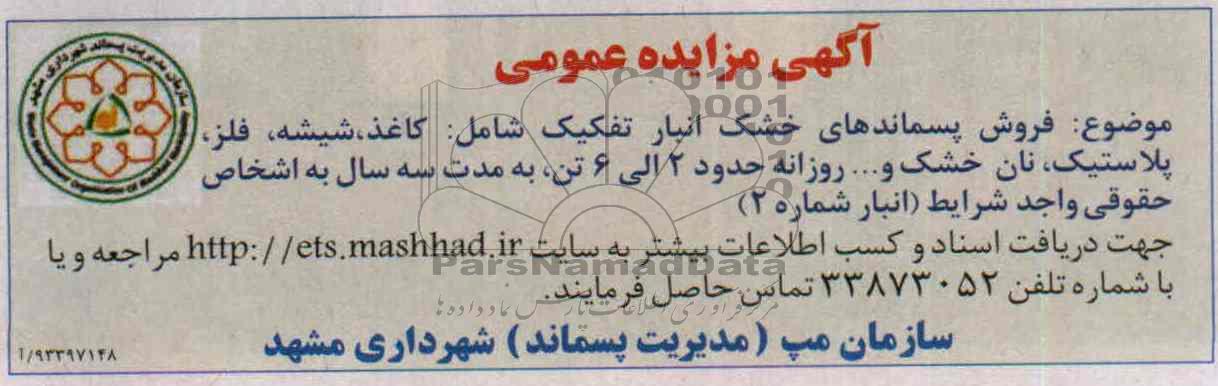 آگهی مزایده عمومی
موضوع: فروش پسماندهای خشک انبار تفکیک شامل: کاغذ،شیشه، فلز،
پلاستیک، نان خشک و... روزانه حدود ۲ الی ۶ تن، به مدت سه سال به اشخاص
حقوقی واجد شرایط (انبار شماره ۲)
جهت دریافت اسناد و کسب اطلاعات بیشتر به سایت http://ets.mashhad.ir مراجعه و یا
با شماره تلفن ۳۳۸۷۳۰۵۲ تماس حاصل فرمایند.
سازمان مپ (مدیریت پسماند) شهرداری مشهد
۹۳۳۹۷۱۴۸/آ
سازمان مدیریت پسماند شهرداری مشهد
Waste Management Organization of Mashhad
ParsNamadData
مرکز فرآوری اطلاعات پارس نماد داده ها